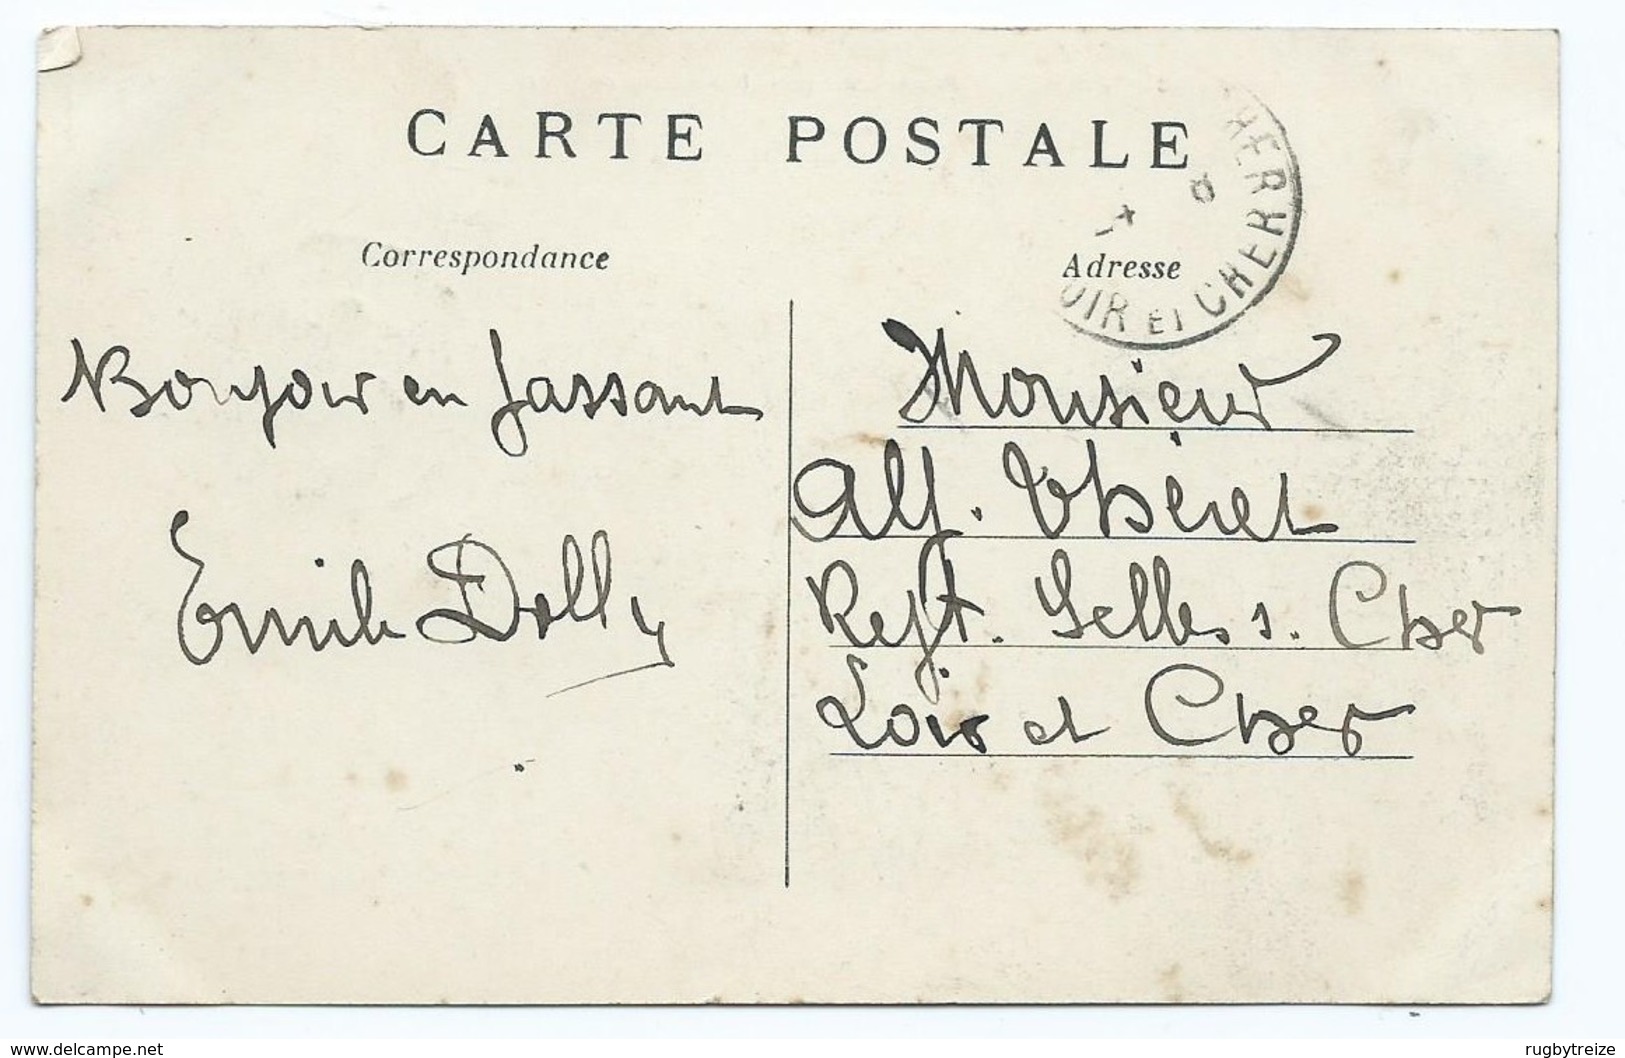 CARTE POSTALE
Correspondance
Adresse
HER
LOIR ET CHER
Bonjour en passant
Emile Dolly
Monsieur
Alf. Théret
Selles s. Cher
Loir et Cher
www.delcampe.net
rugbytreize